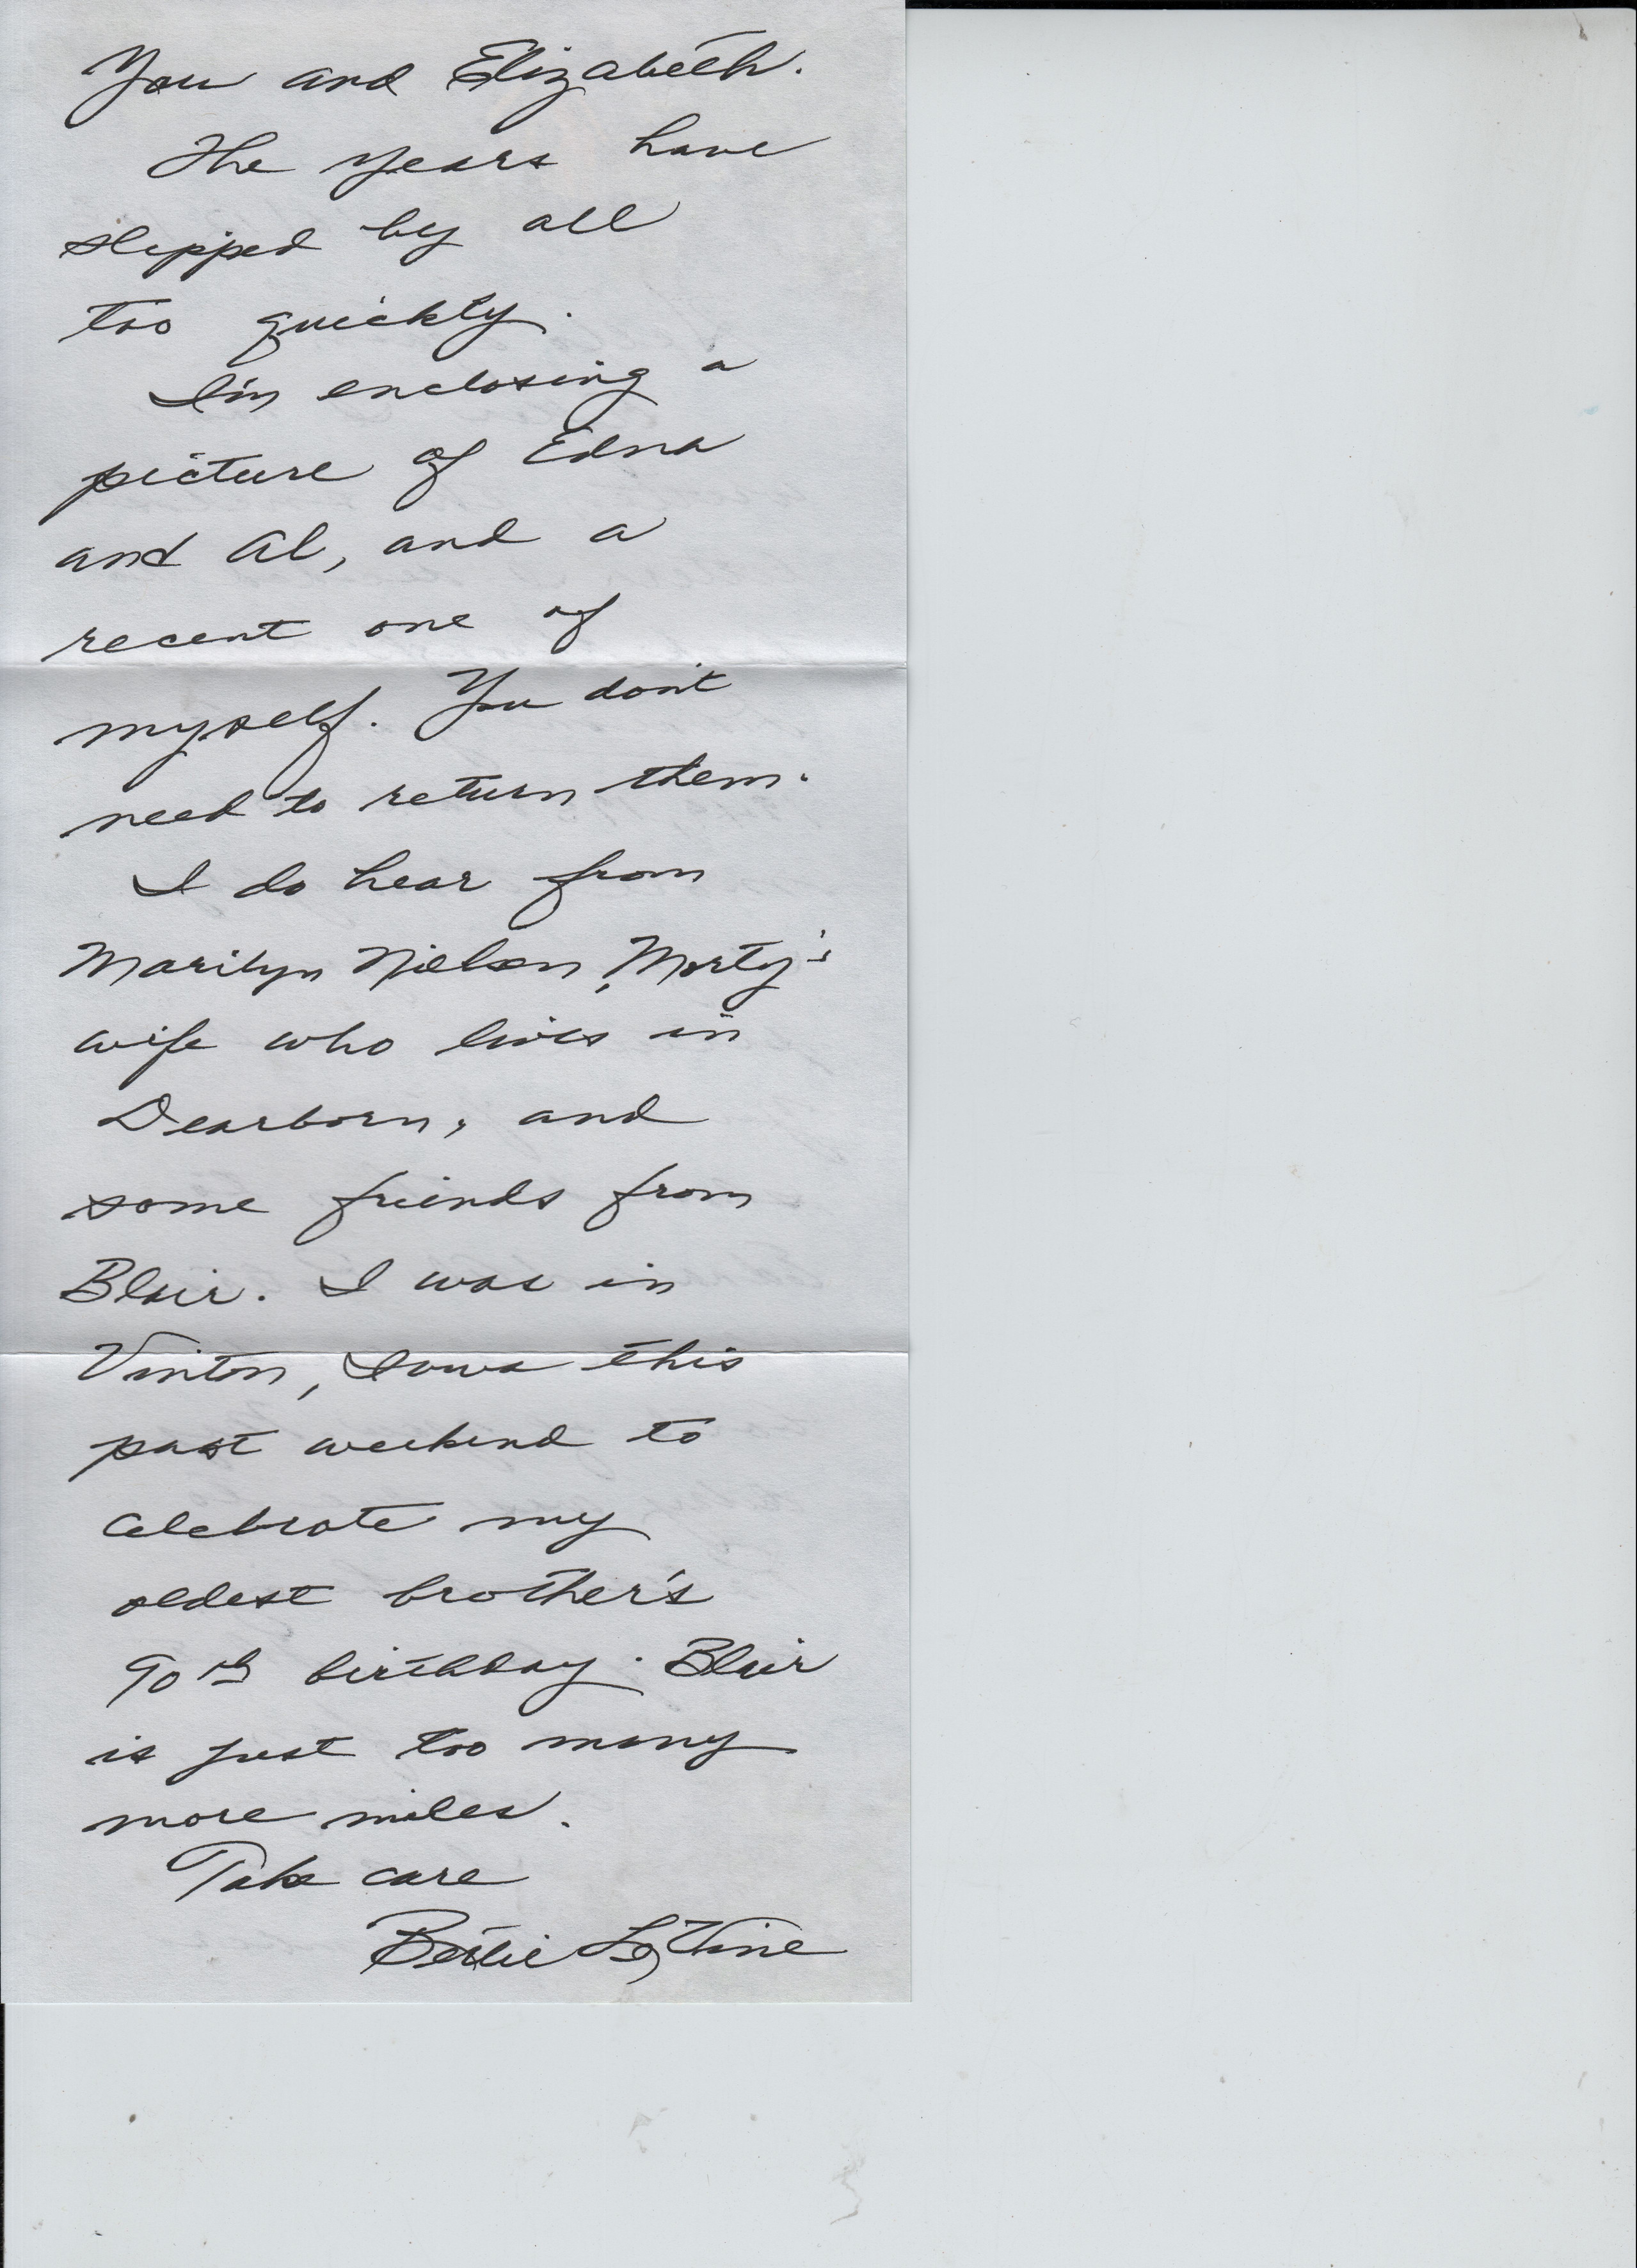 You and Elizabeth.
The years have
slipped by all
too quickly.
I'm enclosing a
picture of Edna
and Al, and a
recent one of
myself. You don't
need to return them.
I do hear from
Marilyn Nielsen, Morty's
wife who lives in
Dearborn, and
some friends from
Blair. I was in
Vinton, Iowa this
past weekend to
celebrate my
oldest brother's
90th birthday. Blair
is just too many
more miles.
Take care
LeVine